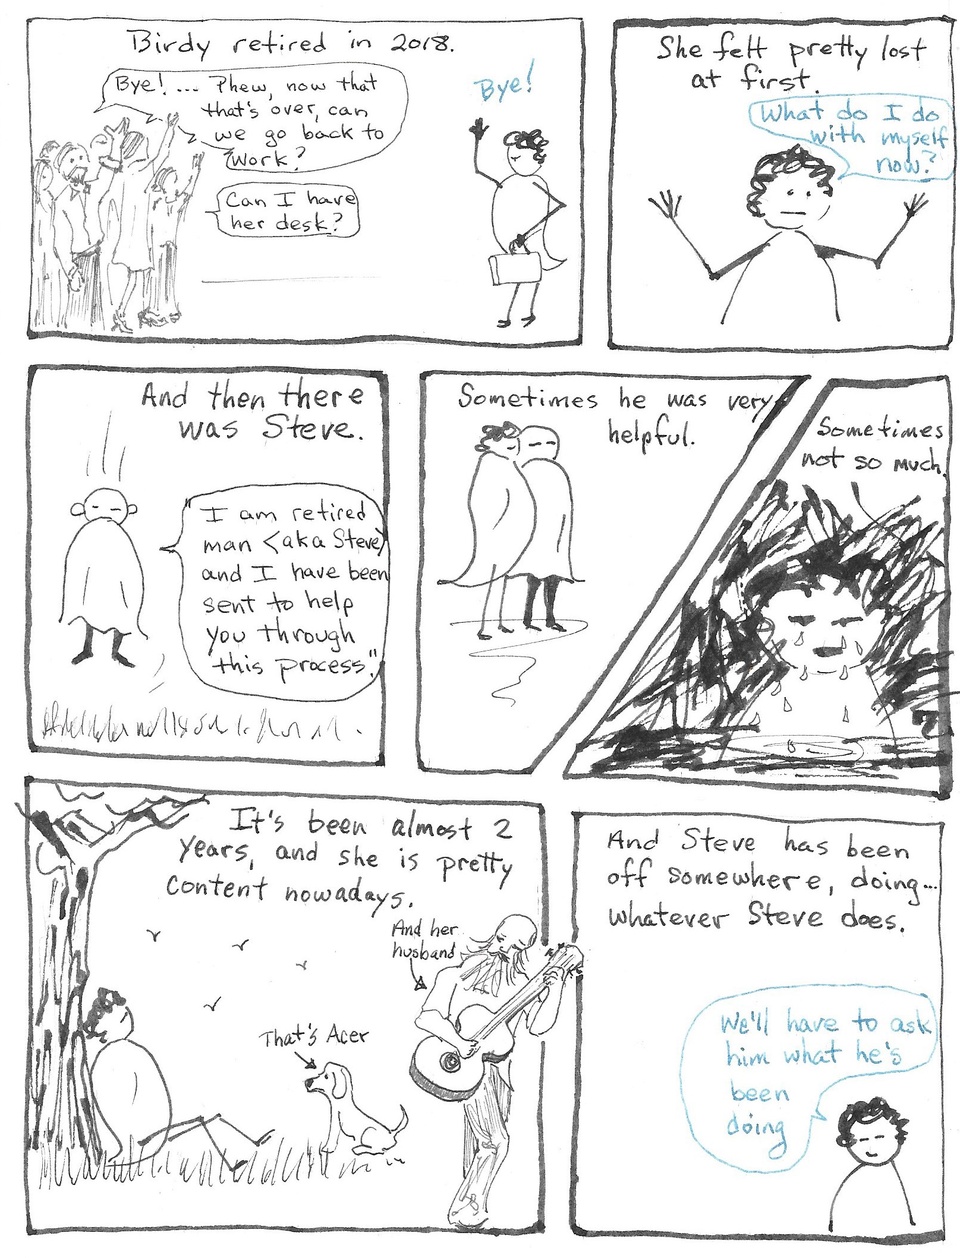 Birdy retired in 2018.
Bye! ... Phew, now that
that's over, can
we go back to
work?
Can I have
her desk?
Bye!
She felt pretty lost
at first.
What do I do
with myself
now?
And then there
was Steve.
"I am retired
man (aka Steve)
and I have been
sent to help
you through
this process."
Sometimes he was very
helpful.
Sometimes
not so much.
It's been almost 2
years, and she is pretty
content nowadays.
And her
husband
That's Acer
And Steve has been
off somewhere, doing...
whatever Steve does.
We'll have to ask
him what he's
been
doing